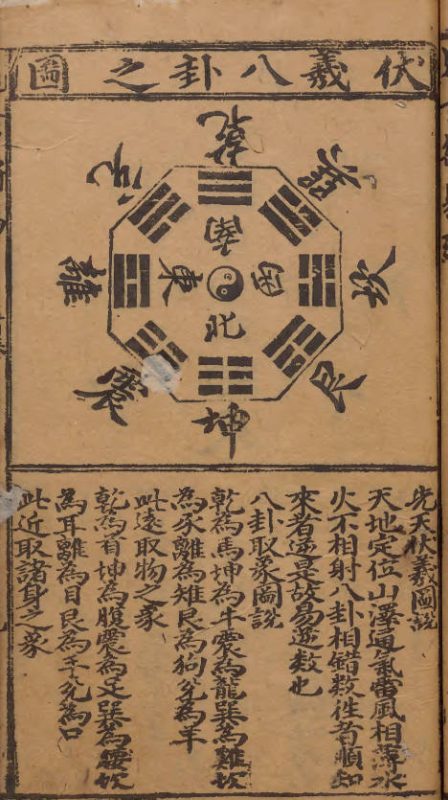 伏羲八卦之圖
乾
兌
巽
南
離
東
西
坎
北
震
艮
坤
先天伏羲圖說
天地定位山澤通氣雷風相薄水
火不相射八卦相錯数往者順知
來者逆是故易逆数也
八卦取象圖說
乾為馬坤為牛震為龍巽為雞坎
為豕離為雉艮為狗兌為羊
此遠取物之象
乾為首坤為腹震為足巽為坎
為耳離為目艮為手兌為口
此近取諸身之象